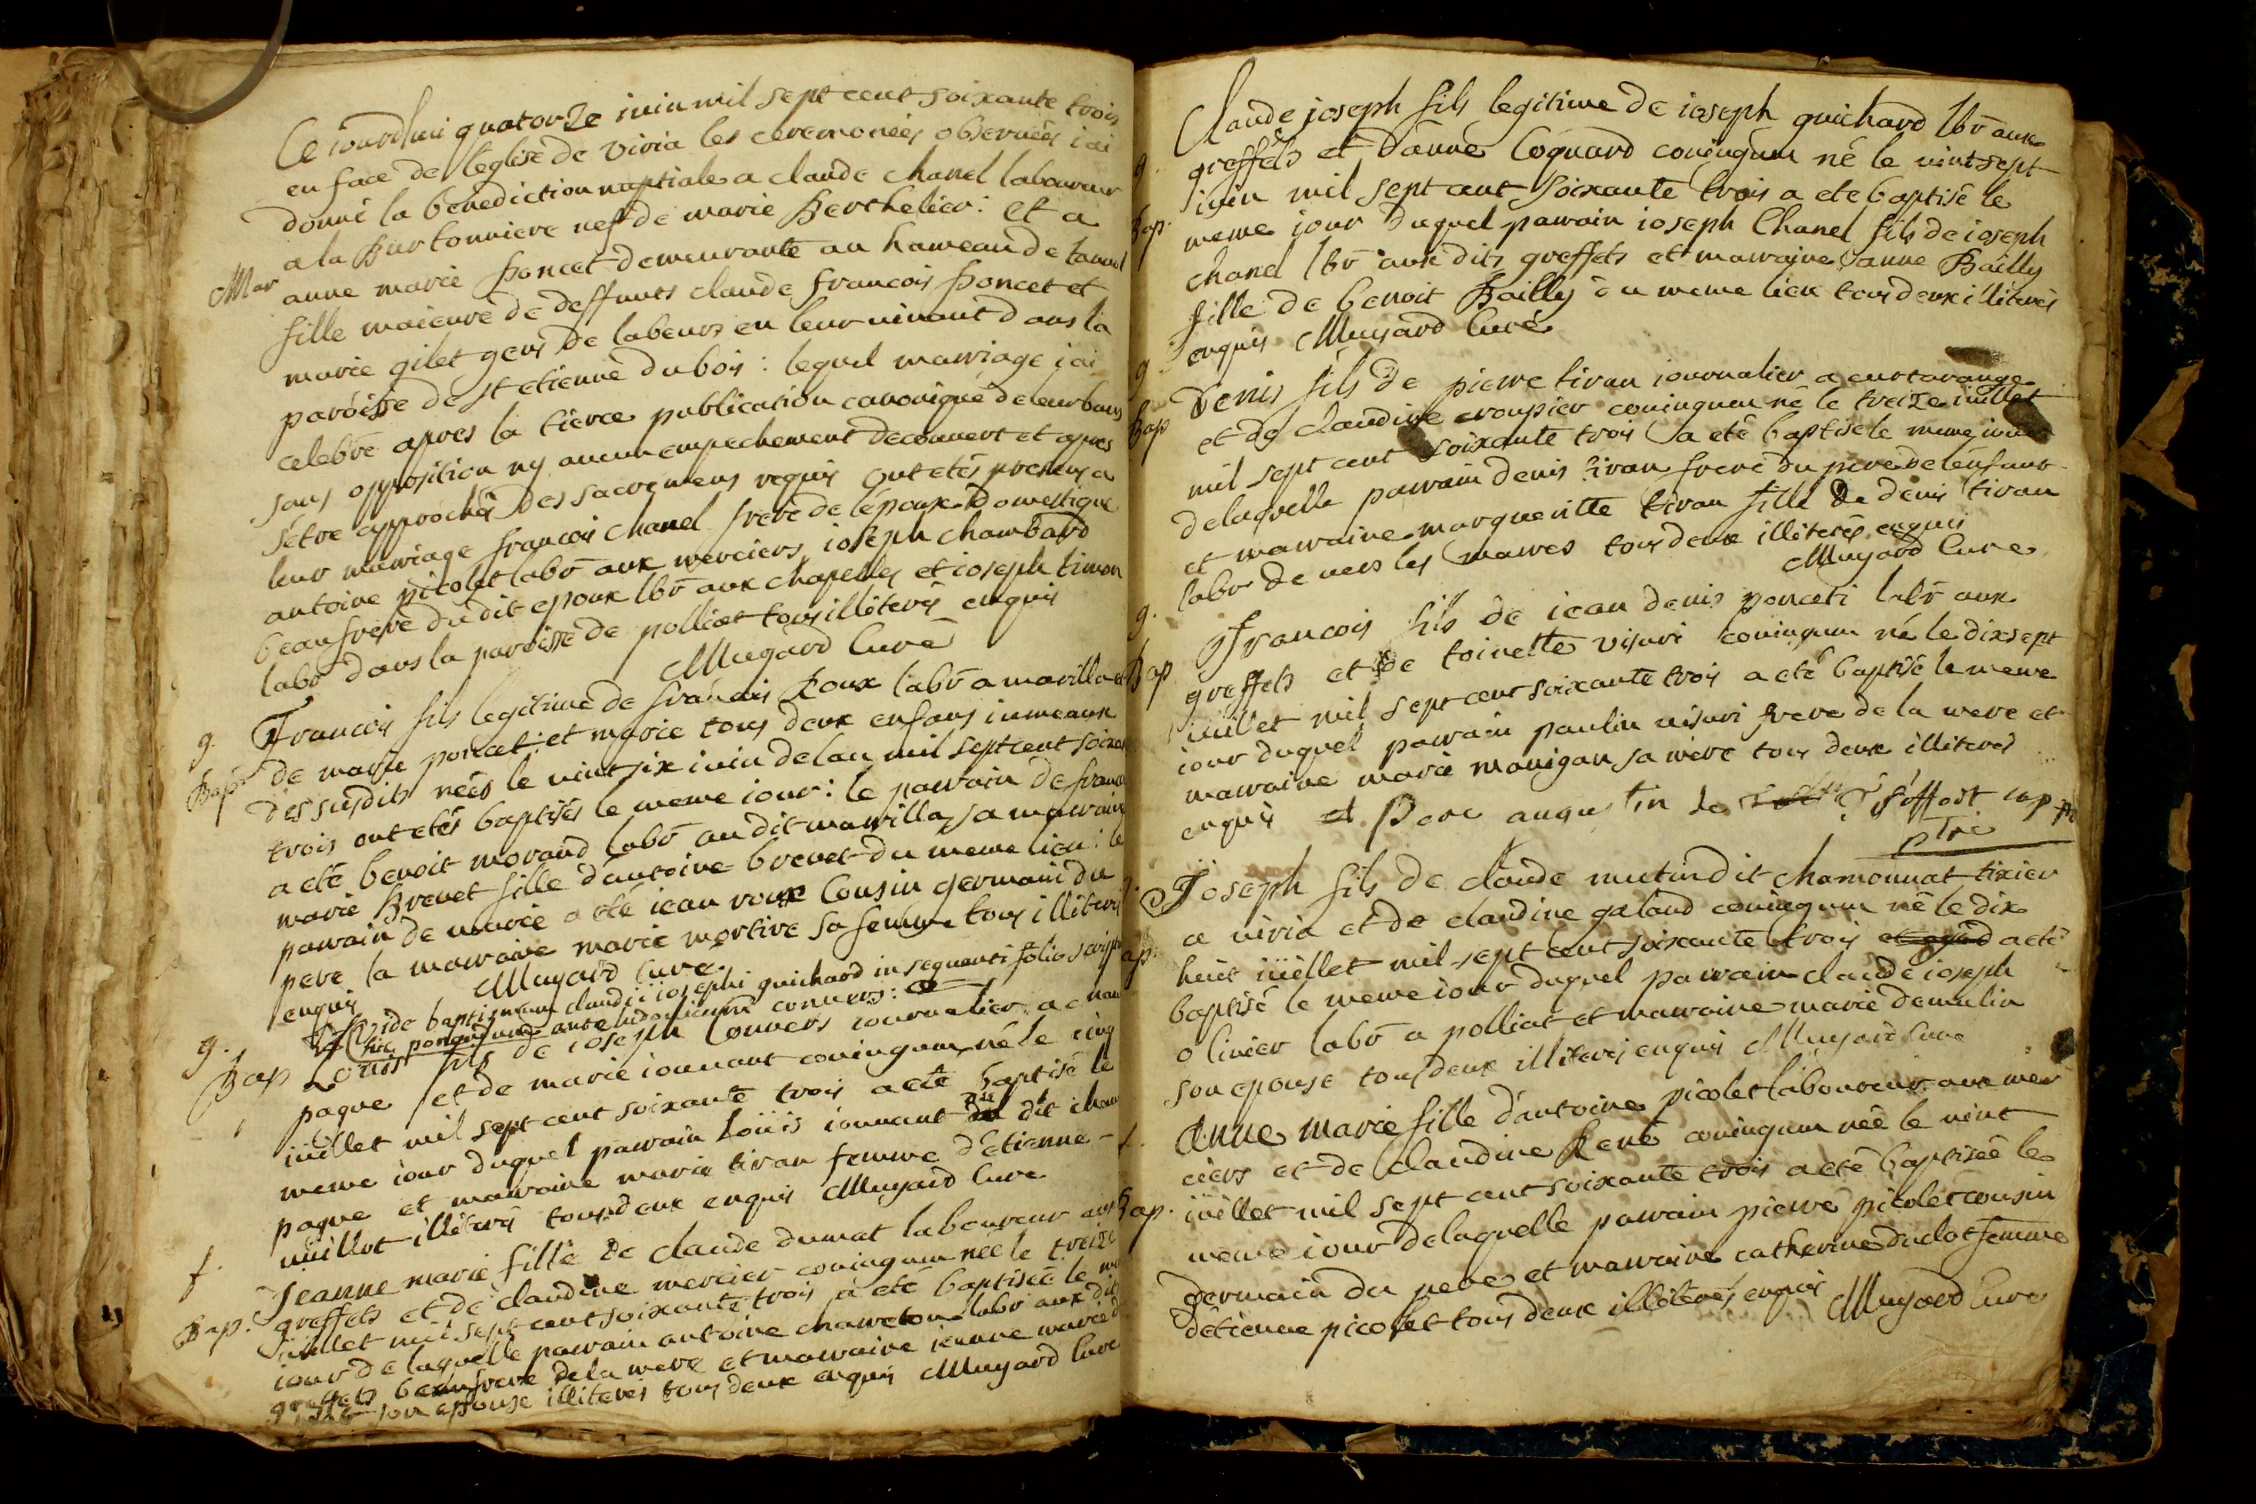 Ce iourdhui quatorze iuin mil sept cent soixante trois
en face de leglise de viria les ceremonies observées i ai
donné la benediction nuptiale a claude chanel laboureur
a la Burtonniere nef de marie Berthelier : et a
Mar
anne marie Poncet demeurante au hameau de
fille maieure de deffunts claude francois Poncet et
marie gilet gens de labeurs en leur vivant dans la
paroisse de st etienne du bois : lequel marriage i ai
celebré apres la tierce publication canonique de leur bans
sans opposition ny aucun empechement decouvert et apres
s'etre approchés des sacremens requis ont etés presens a
leur marriage francois chanel frere de l'epoux domestique
antoine picolet labr aux merciers ioseph chambard
beaufrere du dit epoux lbr aux chapelles et ioseph timon
labr dans la paroisse de polliat tous illiterés enquis
Muyard Curé
g.
Bap
Francois fils legitime de francois Roux labr a marillat
de marie poncet : et marie tous deux enfans iumeaux
des susdits nées le vint six iuin de lan mil sept cent soixa
trois ont etés baptisés le meme iour : le parrain de franc
a eté benoit morand labr au dit marilla, sa marraine
marie Brevet fille d'antoine brevet du meme lieu : le
parrain de marie a eté iean roux Cousin germain du
pere la marraine marie mortire sa femme tous illiterés
enquis Muyard Curé
Vide baptismum claudii iosephi guichard in sequenti folio script
hic ponendum ante ludovicum convers :
g.
Bap
Louis fils de ioseph Convers iournalier a chau
pagne et de marie iounant coniugum né le cinq
iüillet mil sept cent soixante trois a eté baptisé le
meme iour duquel parrain Loüis iounant dit cham
pagne et marraine marie tiran femme d'Etienne
nüillot illiterés tous deux enquis Muyard Cure
f.
Bap.
Jeanne marie fille de claude dumat laboureur aux
greffets et de claudine mercier coniugum née le treize
iuillet mil sept cent soixante trois a eté baptisée le me
iour de laquelle parrain antoine chareton labr aux dit
greffets beaufrere de la mere et marraine ieanne marie d
son epouse illiterés tous deux enquis Muyard Cure
Claude joseph fils legitime de ioseph guichard lbr aux
g.
greffets et d'anne Cognard coniugum né le vint sept
iuin mil sept cent soixante trois a eté baptisé le
Bap.
meme iour duquel parrain ioseph Chanel fils de ioseph
chanel lbr aux dits greffets et marraine anne Bailly
fille de benoit Bailly du meme lieu tous deux illiterés
enquis Muyard Curé
g
Bap
Denis fils de pierre tiran iournalier a curtarange
et de claudine croupier coniugum né le treize iüillet
mil sept cent soixante trois a eté baptisé le meme iour
de laquelle parrain denis tiran frere du pere de lenfant
et marraine margueritte tiran fille de denis tiran
labr de vers les mares tous deux illiterés enquis
Muyard Cure
g.
Bap
Francois fils de iean denis ponceti labr aux
greffets et de toinette visuri coniugum né le dixsept
iuillet mil sept cent soixante trois a eté baptisé le meme
iour duquel parrain paulin visuri frere de la mere et
marraine marie manigan sa mere tous deux illiterés
enquis Pere augustin de cap
ptre
Joseph fils de claude mutin dit chamonnat tixier
a viria et de claudine galand coniugum né le dix
ap.
heüt iüillet mil sept cent soixante trois a eté
baptisé le meme iour duquel parrain claude ioseph
olivier labr a polliat et marraine marie demulin
son epouse tous deux illiterés enquis Muyard Cure
f.
Anne marie fille d'antoine picolet laboureur aux mer
ciers et de claudine René coniugum née le vint
iüillet mil sept cent soixante trois a eté baptisée le
Bap.
meme iour de laquelle parrain pierre picolet cousin
germain du pere et marraine catherine duclot femme
d'etienne picolet tous deux illiterés enquis Muyard Cure